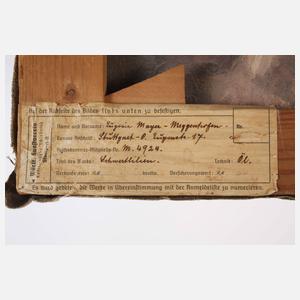 Auf der Rückseite des Bildes links unten zu befestigen.
Name und Vorname: Eugenie Mayer-Meggenhofen. Nr.
Genaue Anschrift: Stuttgart-O. Eugenstr. 17.
Reichskammer-Mitglieds-Nr. M. 4924.
Titel des Werks: Schwertlilien. Technik: Öl.
Verkaufspreis: RM. brutto. Versicherungswert: RM.
Es wird gebeten, die Werke in Übereinstimmung mit der Anmeldeliste zu numerieren.
Württ. Kunstverein